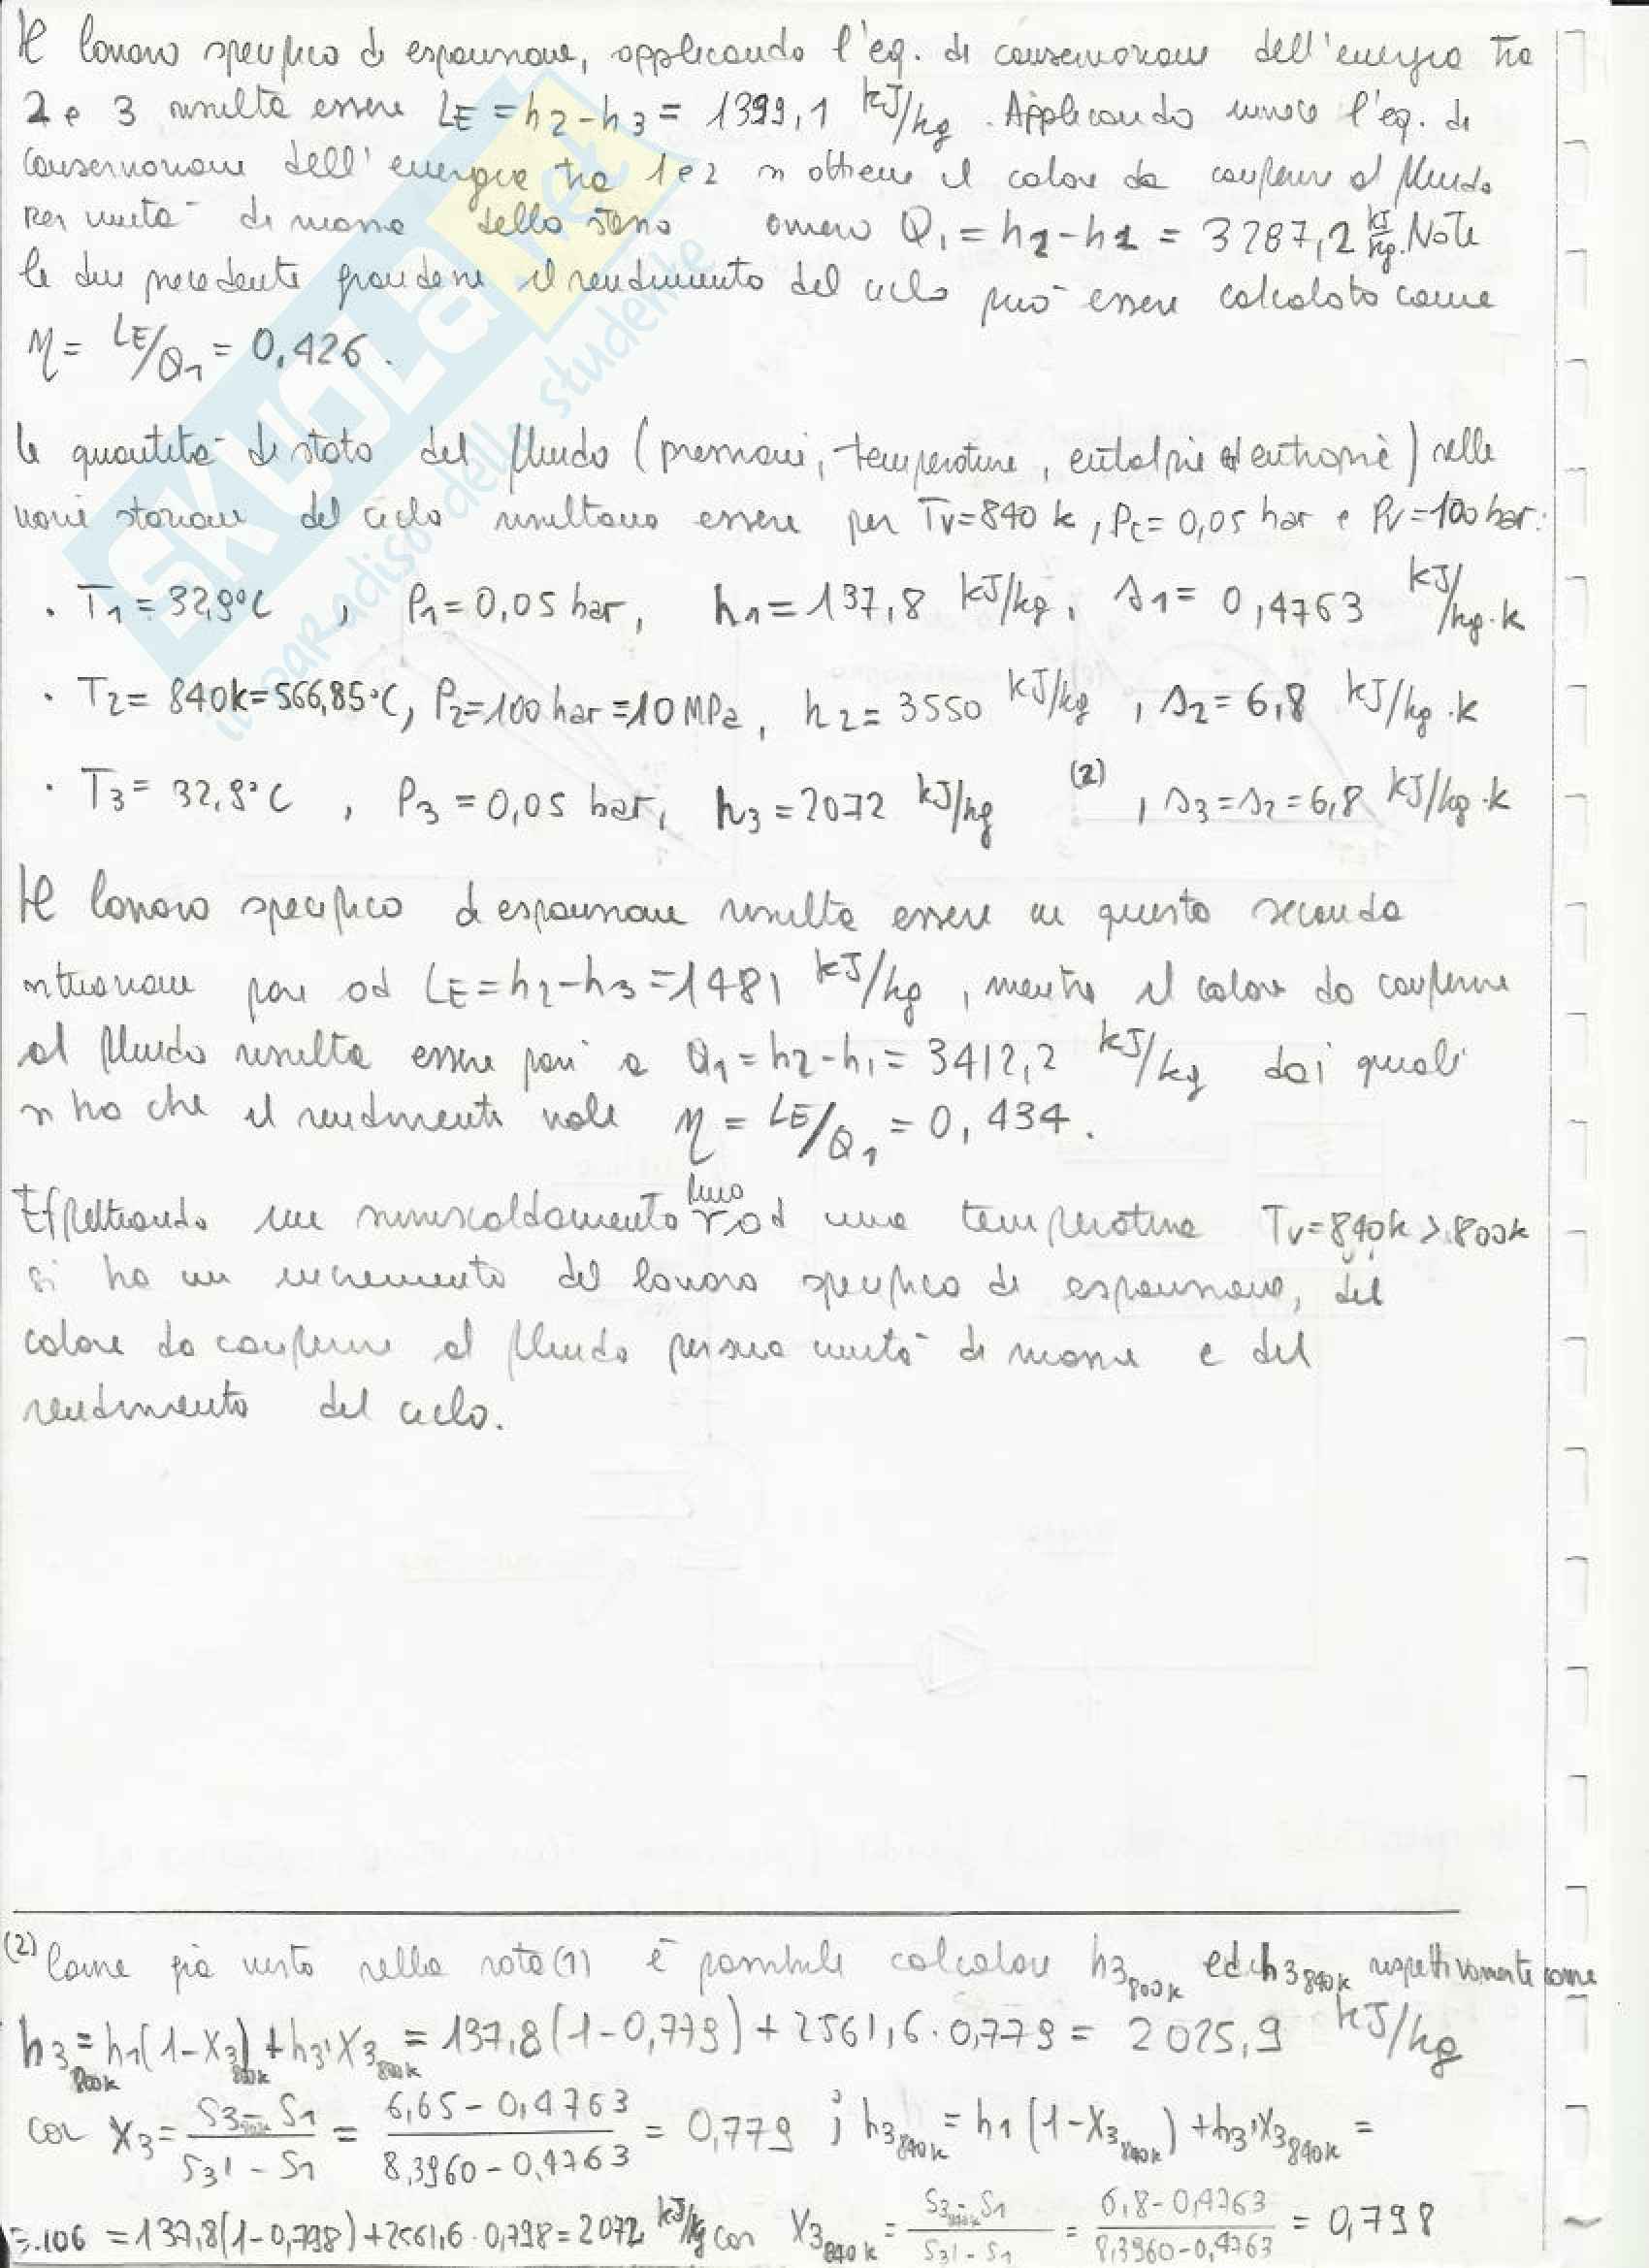 Il lavoro specifico di espansione, applicando l'eq. di conservazione dell'energia tra
2 e 3 risulta essere LE = h2 - h3 = 1399,1 kJ/kg. Applicando invece l'eq. di
conservazione dell'energia tra 1 e 2 si ottiene il calore da conferire al fluido
per unità di massa dello stesso ovvero Q1 = h2 - h1 = 3287,2 kJ/kg. Note
le due precedente grandezze il rendimento del ciclo può essere calcolato come
η = LE/Q1 = 0,426.
le quantità di stato del fluido (pressioni, temperature, entalpie ed entropie) nelle
varie stazioni del ciclo risultano essere per Tv=840 k, Pc=0,05 bar e Pv=100 bar:
· T1 = 32,9°C , P1=0,05 bar, h1=137,8 kJ/kg, s1= 0,4763 kJ/kg·k
· T2= 840k=566,85°C, P2=100 bar=10 MPa, h2=3550 kJ/kg, s2=6,8 kJ/kg·k
· T3= 32,9°C , P3=0,05 bar, h3=2072 kJ/kg (2), s3=s2=6,8 kJ/kg·k
Il lavoro specifico di espansione risulta essere in questa seconda
situazione pari ad LE=h2-h3=1481 kJ/kg, mentre il calore da conferire
al fluido risulta essere pari a Q1=h2-h1=3412,2 kJ/kg dai quali
si ha che il rendimento vale η = LE/Q1 = 0,434.
Effettuando un surriscaldamento fino ad una temperatura Tv=840k > 800k
si ha un incremento del lavoro specifico di espansione, del
calore da conferire al fluido per sua unità di massa e del
rendimento del ciclo.
(2) Come già visto nella nota (1) è possibile calcolare h3 800k ed h3 840k rispettivamente come
h3 800k = h1(1-x3 800k)+h3'x3 800k = 137,8(1-0,779)+2561,6·0,779 = 2025,9 kJ/kg
con x3 = s3 800k - s1 / s3' - s1 = 6,65-0,4763 / 8,3960-0,4763 = 0,779 ; h3 840k = h1(1-x3 840k)+h3'x3 840k =
=137,8(1-0,798)+2561,6·0,798=2072 kJ/kg con x3 840k = s3 840k - s1 / s3' - s1 = 6,8-0,4763 / 8,3960-0,4763 = 0,798
SKUOLA.net
il paRadiso dello studente